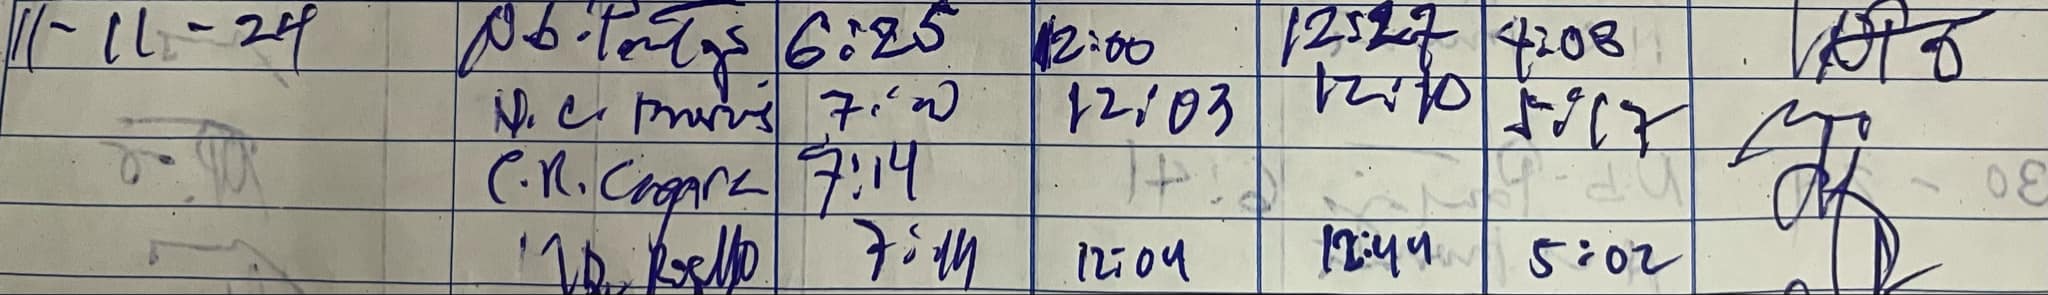 11-11-24 N.b. Pantojs 6:25 12:00 12:27 4:08
N.C. 7:20 12:03 12:10 5:17
C.R. Cagara 7:14
Rosello 7:44 12:04 12:44 5:02